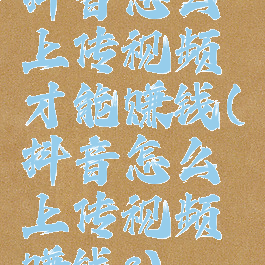 抖音怎么
上传视频
才能赚钱(
抖音怎么
上传视频
赚钱?)